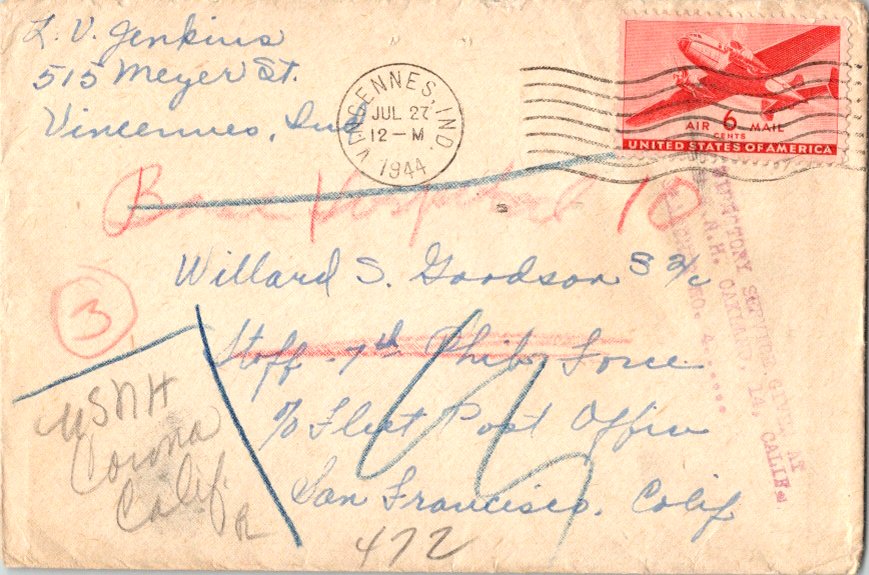 L. V. Jenkins
515 Meyer St.
Vincennes, Ind
VINCENNES, IND.
JUL 27
12-M
1944
AIR 6 MAIL
CENTS
UNITED STATES OF AMERICA
Base Hospital 10
Willard S. Goodson S 2/c
3
Staff - 7th Phib. Force
c/o Fleet Post Office
San Francisco. Calif
USNH
Corona
Calif.
R
472
DIRECTORY SERVICE GIVEN AT
U.S.N.H. OAKLAND, 14, CALIF.
NO. 4.....